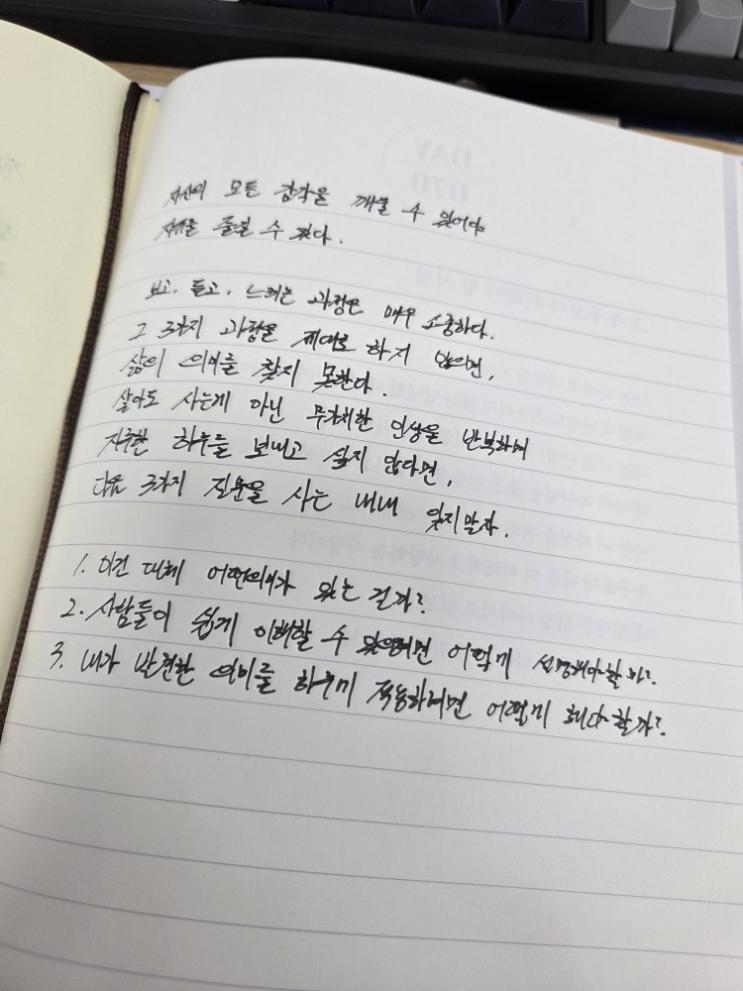 자신의 모든 감각을 깨울 수 있어야
을 즐길 수 있다.
보고, 듣고, 느끼는 과정은 매우 소중하다.
그 3가지 과정을 제대로 하지 않으면,
삶의 의미를 찾지 못한다.
살아도 사는게 아닌 무가치한 인생을 반복하며
지루한 하루를 보내고 싶지 않다면,
다음 3가지 질문을 사는 내내 잊지말자.
1. 이건 대체 어떤의미가 있는 걸까?
2. 사람들이 쉽게 이해할 수 있으려면 어떻게 설명해야할까?
3. 내가 발견한 의미를 하루에 적용하려면 어떻게 해야할까?